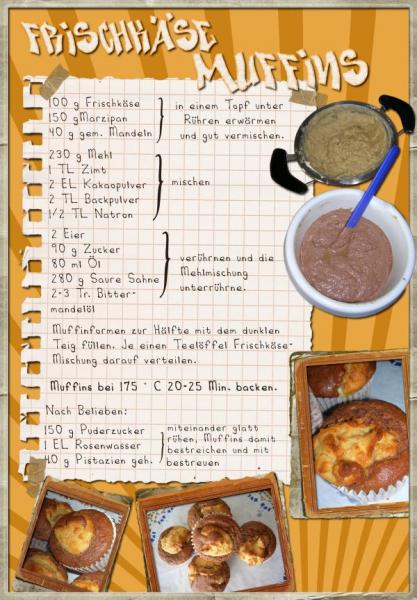 Frischkäse
Muffins
100 g Frischkäse
150 gMarzipan
40 g gem. Mandeln
in einem Topf unter
Rühren erwärmen
und gut vermischen.
230 g Mehl
1 TL Zimt
2 EL Kakaopulver
2 TL Backpulver
1/2 TL Natron
mischen
2 Eier
90 g Zucker
80 ml Öl
280 g Saure Sahne
2-3 Tr. Bitter-
mandelöl
verührnen und die
Mehlmischung
unterrührne.
Muffinformen zur Hälfte mit dem dunklen
Teig füllen. Je einen Teelöffel Frischkäse-
Mischung darauf verteilen.
Muffins bei 175 ° C 20-25 Min. backen.
Nach Belieben:
150 g Puderzucker
1 EL Rosenwasser
40 g Pistazien geh.
miteinander glatt
rühen, Muffins damit
bestreichen und mit
bestreuen